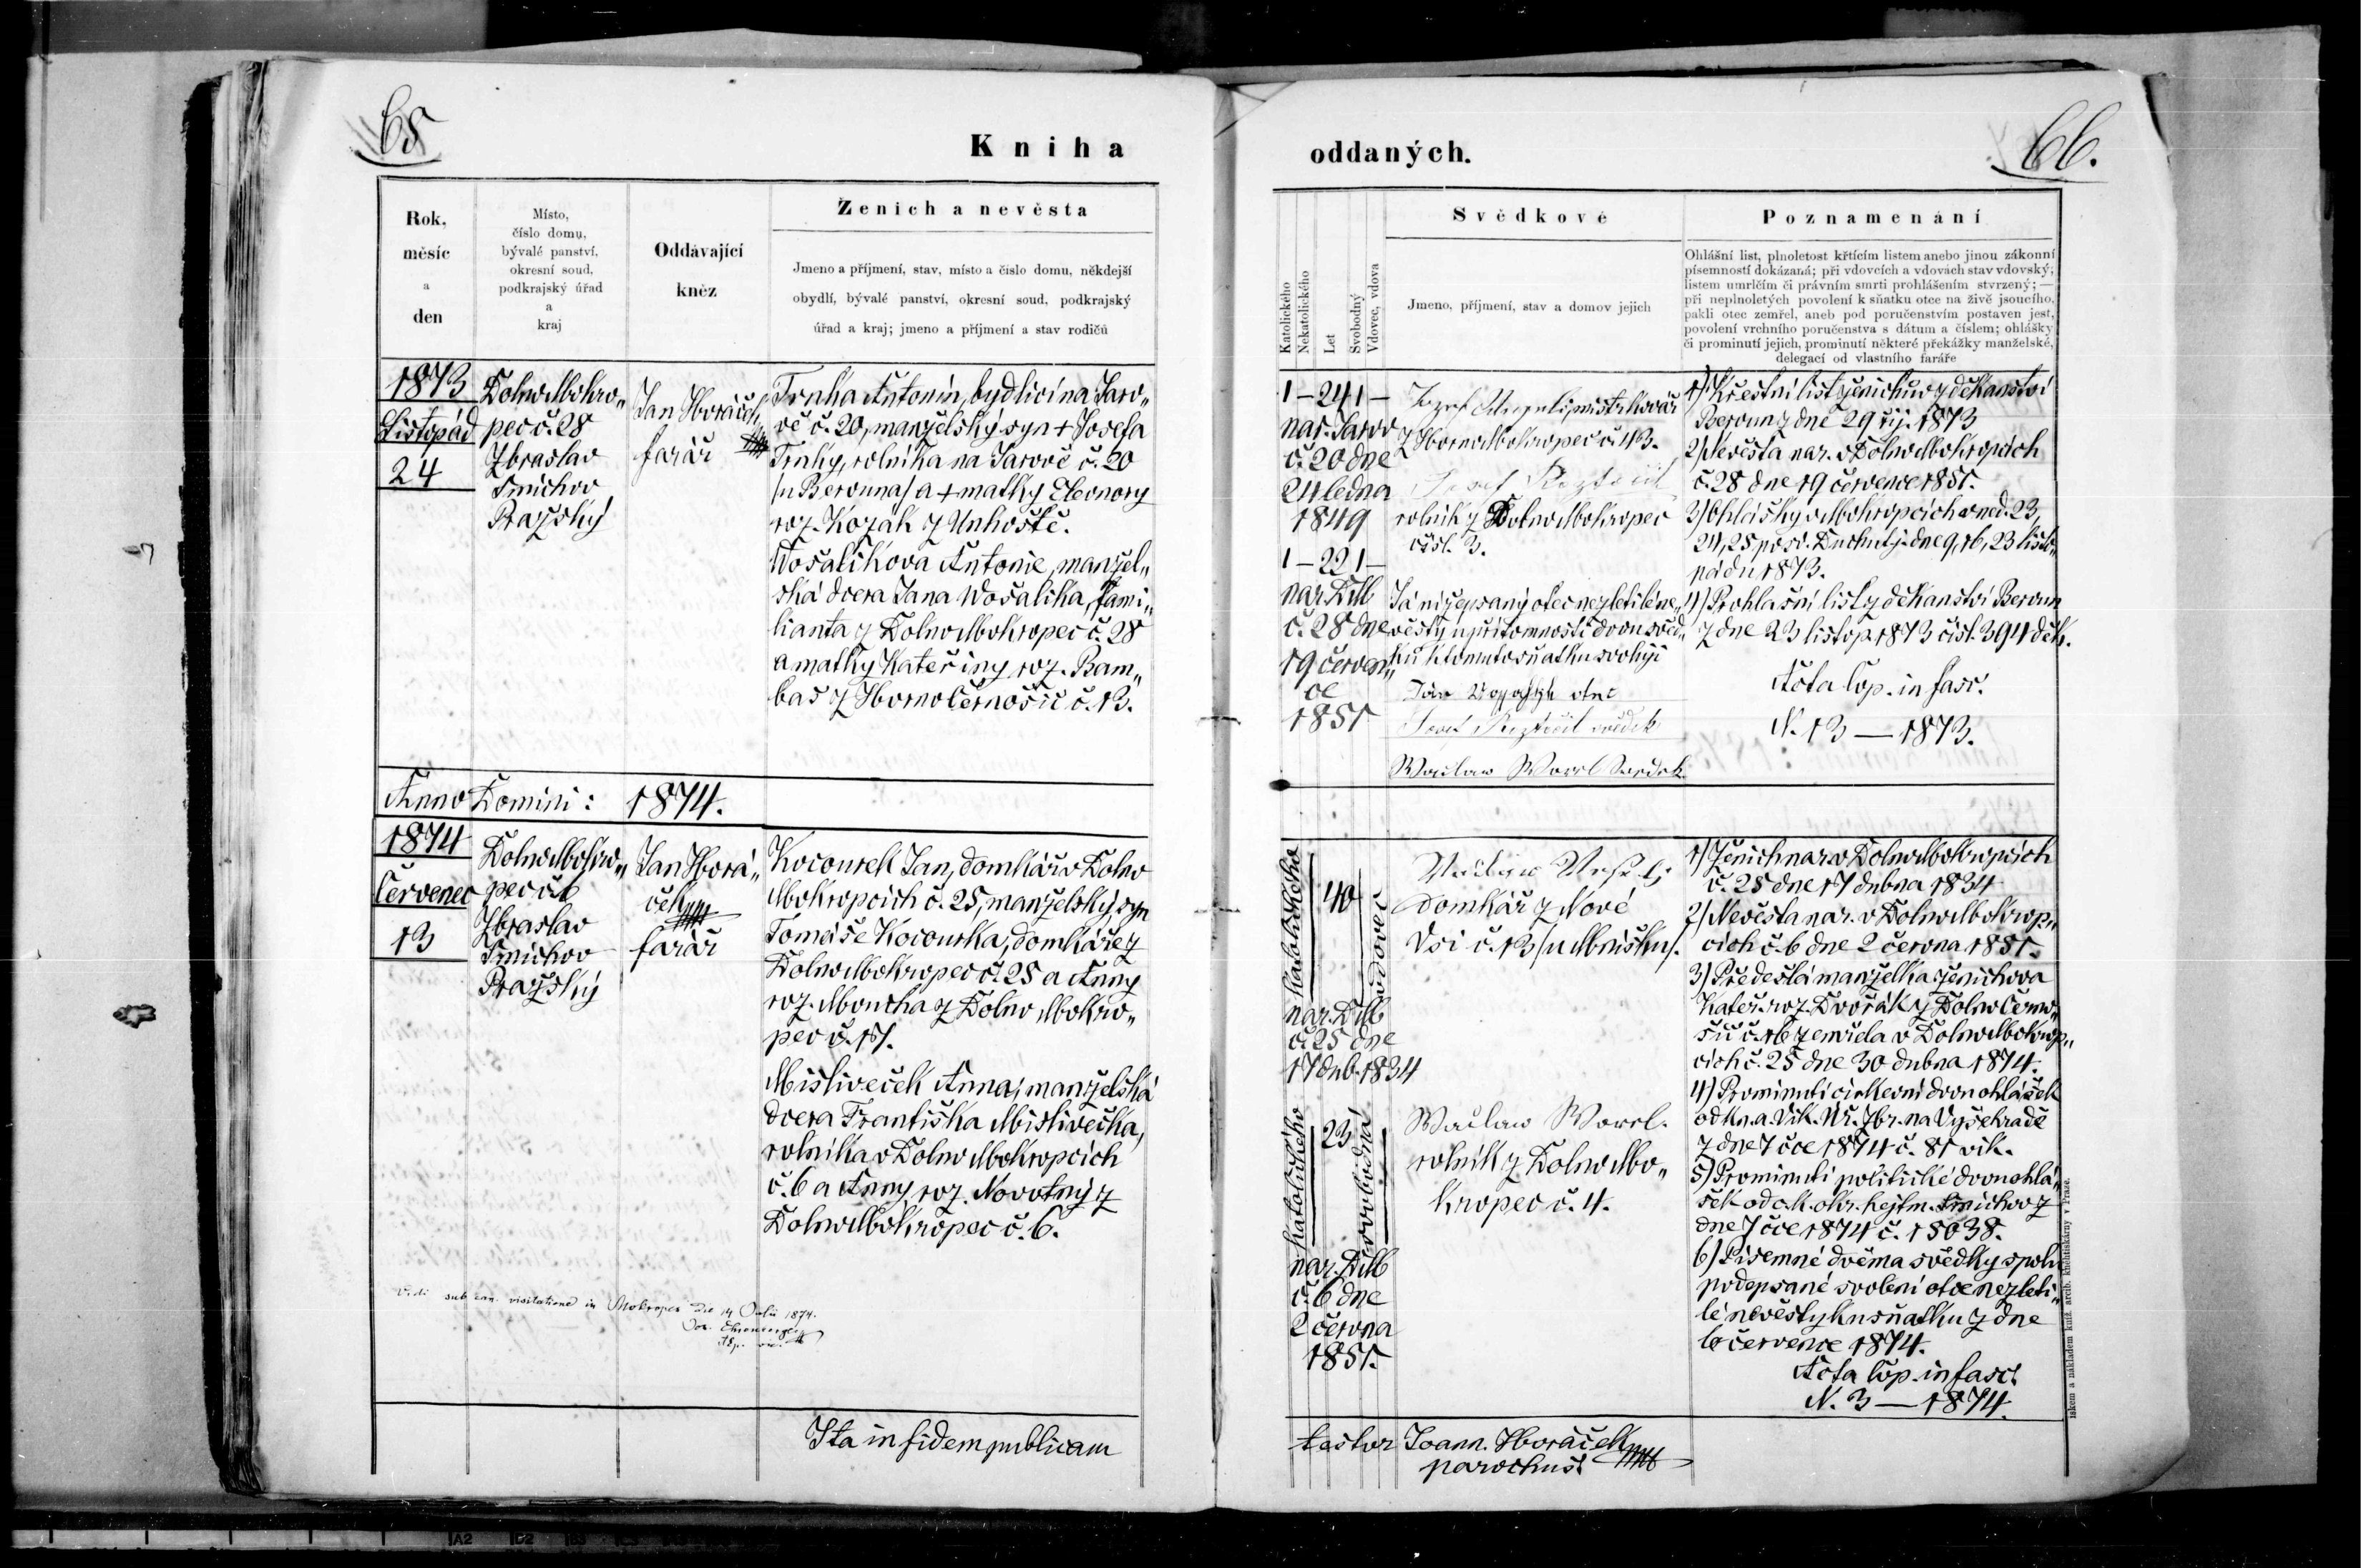 65
Kniha
Rok,
měsíc
a
den
Místo,
číslo domu,
bývalé panství,
okresní soud,
podkrajský úřad
a
kraj
Oddávající
kněz
Ženich a nevěsta
Jmeno a příjmení, stav, místo a číslo domu, někdejší
obydlí, bývalé panství, okresní soud, podkrajský
úřad a kraj; jmeno a příjmení a stav rodičů
1873
Listopád
24
Dolno Mokro„
pec č. 28
Zbraslav
Smichov
Pražský
Jan Horáček,
farář
Trnka Antonín, bydlící na Jaro„
vě č. 20, manželský syn + Josefa
Trnky, rolníka na Jarově č. 20
/u Berouna/ a + matky Eleonory
roz. Kozák z Unhoště.
Wošalíkova Antonie, manžel„
ská dcera Jana Wošalíka, fami„
lianta z Dolno Mokropec č. 28
a matky Kateřiny roz. Bam„
bas z Horno Černošic č. 13.
Anno Domini: 1874.
1874
Červenec
13
Dolno Mokro„
pec č. 6
Zbraslav
Smichov
Pražský
Jan Horá„
ček
farář
Kocourek Jan, domkář v Dolno
Mokropcích č. 25, manželský syn
Tomáše Kocourka, domkáře z
Dolno Mokropec č. 25 a Anny
roz. Moucha z Dolno Mokro„
pec č. 17.
Misliveček Anna, manželská
dcera Františka Mislivečka,
rolníka v Dolno Mokropcích
č. 6 a Anny, roz. Novotný z
Dolno Mokropec č. 6.
Vidi sub can. visitatione in Mokropec die 14 Julii 1874.
Jos.
Ita in fidem publicam
66.
oddaných.
Katolického
Nekatolického
Let
Svobodný
Vdovec, vdova
Svědkové
Jmeno, příjmení, stav a domov jejich
Poznamenání
Ohlášní list, plnoletost křtícím listem anebo jinou zákonní
písemností dokázaná; při vdovcích a vdovách stav vdovský;
listem umrlčím či právním smrti prohlášením stvrzený; —
při neplnoletých povolení k sňatku otce na živě jsoucího,
pakli otec zemřel, aneb pod poručenstvím postaven jest,
povolení vrchního poručenstva s dátum a číslem; ohlášky
či prominutí jejich, prominutí některé překážky manželské,
delegací od vlastního faráře
1 — 24 1 —
nar. Jarov
č. 20 dne
24 ledna
1849
1 — 22 1 —
nar. D M
č. 28 dne
19 červen„
ce
1851
Jozef mistr kovář
z Horno Mokropec č. 43.
Josef Roztočil
rolník z Dolno Mokropec
čísl. 3.
Já nížepsaný otec nezletilé ne„
věsty u přítomnosti dvou svěd„
ků k tomuto sňatku svoluji
Jan otec
Josef Roztočil svědek
Wačlaw Worel Swedek
1) Křestní list ženichův z děkanství
Beroun z dne 29 říj. 1873
2) Nevěsta nar. v Dolno Mokropcích
č. 28 dne 19 července 1851.
3) Ohlášky v Mokropcích v ned. 23,
24, 25 po sv. Duchu tj. dne 9, 16, 23 listo„
pádu 1873.
4) Prohlašní list z děkanství Beroun
z dne 23 listop. 1873 čísl. 394 děk.
Acta Cop. in fasc.
N. 13 — 1873.
katolického
40
vdovec
nar. D M
č. 25 dne
17 dub. 1834
katolického
23
svobodná
nar. D M
č. 6 dne
2 června
1851.
domkář z Nové
Vsi č. 13 /u Mníšku/.
Wačlaw Worel.
rolník z Dolno Mo„
kropec č. 4.
1) Ženich nar. v Dolno Mokropcích
č. 25 dne 17 dubna 1834
2) Nevěsta nar. v Dolno Mokrop„
cích č. 6 dne 2 června 1851.
3) Předešlá manželka ženichova
Kateř. roz. Dvořák z Dolno Černo„
šic č. 16 zemřela v Dolno Mokrop„
cích č. 25 dne 30 dubna 1874.
4) Prominutí církevní dvou ohlášek
od kn. a. Vik. Úř. Zbr. na Vyšehradě
z dne 7 čce 1874 č. 81 vik.
5) Prominutí politické dvou ohlá„
šek od c. k. okr. hejtm. Smichov z
dne 7 čce 1874 č. 15038.
6) Písemné dvěma svědky spolu
podepsané svolení otce nezleti„
lé nevěsty ku sňatku z dne
6 července 1874.
Acta Cop. in fasc.
N. 3 — 1874.
testor Joann. Horáček
parochus.
tiskem a nákladem kníž. arcib. knihtiskárny v Praze.